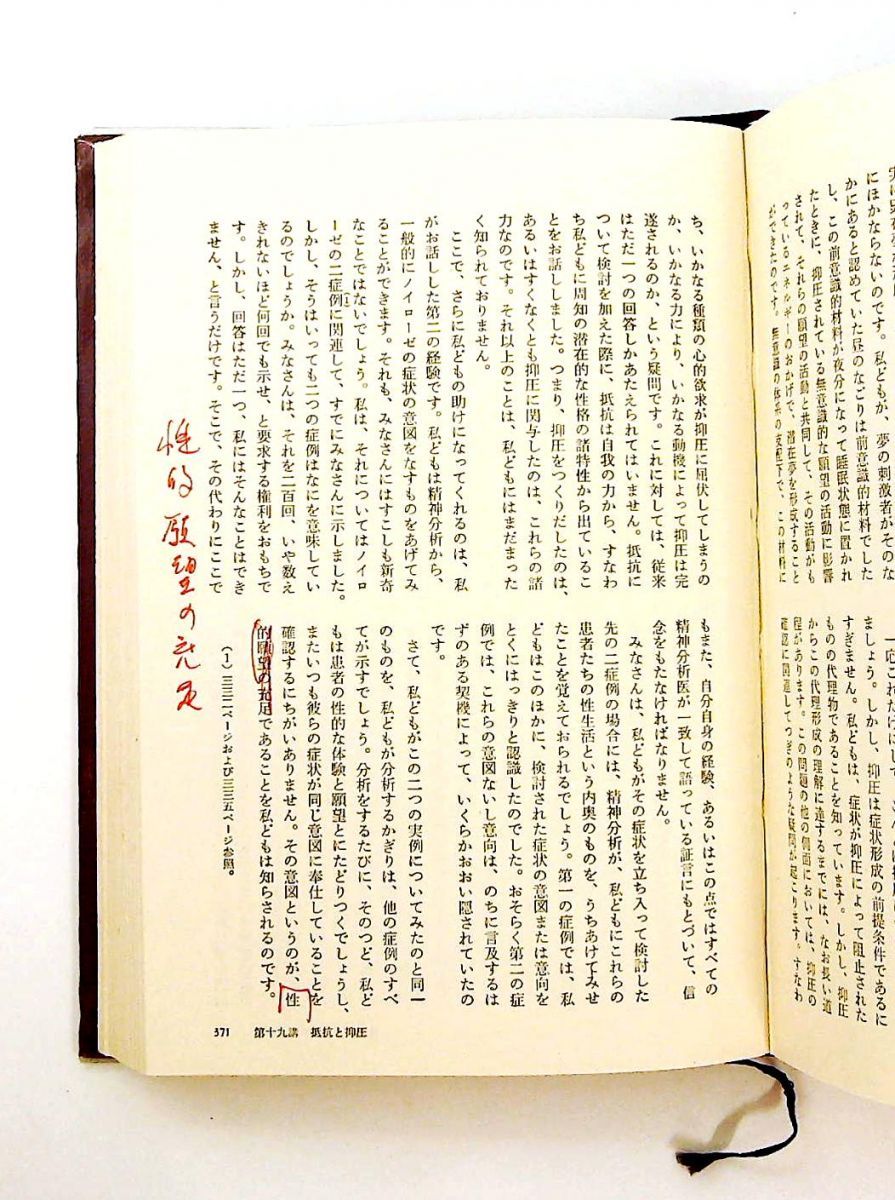 にほかならないのです。私どもが、夢の刺激者がそのな
かにあると認めていた昼のなごりは前意識的材料でした
し、この前意識的材料が夜分になって睡眠状態に置かれ
たときに、抑圧されている無意識的な願望の活動に影響
されて、それらの願望の活動と共同して、その活動がも
っているエネルギーのおかげで、潜在夢を形成すること
ができたのです。無意識の体系の支配下で、この材料に
一応これだけにして
ましょう。しかし、抑圧は症状形成の前提条件であるに
すぎません。私どもは、症状が抑圧によって阻止された
ものの代理物であることを知っています。しかし、抑圧
からこの代理形成の理解に達するまでには、なお長い道
程があります。この問題の他の側面においては、抑圧の
確認に関連してつぎのような疑問が起こります。すなわ
ち、いかなる種類の心的欲求が抑圧に屈伏してしまうの
か、いかなる力により、いかなる動機によって抑圧は完
遂されるのか、という疑問です。これに対しては、従来
はただ一つの回答しかあたえられてはいません。抵抗に
ついて検討を加えた際に、抵抗は自我の力から、すなわ
ち私どもに周知の潜在的な性格の諸特性から出ているこ
とをお話ししました。つまり、抑圧をつくりだしたのは、
あるいはすくなくとも抑圧に関与したのは、これらの諸
力なのです。それ以上のことは、私どもにはまだまった
く知られておりません。
ここで、さらに私どもの助けになってくれるのは、私
がお話しした第二の経験です。私どもは精神分析から、
一般的にノイローゼの症状の意図をなすものをあげてみ
ることができます。それも、みなさんにはすこしも新奇
なことではないでしょう。私は、それについてはノイロ
ーゼの二症例(1)に関連して、すでにみなさんに示しました。
しかし、そうはいっても二つの症例はなにを意味してい
るのでしょうか。みなさんは、それを二百回、いや数え
きれないほど何回でも示せ、と要求する権利をおもちで
す。しかし、回答はただ一つ、私にはそんなことはでき
ません、と言うだけです。そこで、その代わりにここで
もまた、自分自身の経験、あるいはこの点ではすべての
精神分析医が一致して語っている証言にもとづいて、信
念をもたなければなりません。
みなさんは、私どもがその症状を立ち入って検討した
先の二症例の場合には、精神分析が、私どもにこれらの
患者たちの性生活という内奥のものを、うちあけてみせ
たことを覚えておられるでしょう。第一の症例では、私
どもはこのほかに、検討された症状の意図または意向を
とくにはっきりと認識したのでした。おそらく第二の症
例では、これらの意図ないし意向は、のちに言及するは
ずのある契機によって、いくらかおおい隠されていたの
です。
さて、私どもがこの二つの実例についてみたのと同一
のものを、私どもが分析するかぎりは、他の症例のすべ
てが示すでしょう。分析をするたびに、そのつど、私ど
もは患者の性的な体験と願望とにたどりつくでしょうし、
またいつも彼らの症状が同じ意図に奉仕していることを
確認するにちがいありません。その意図というのが、性
的願望の充足であることを私どもは知らされるのです。
(1) 三三一ページおよび三三五ページ参照。
性的願望の充足
371 第十九講 抵抗と抑圧